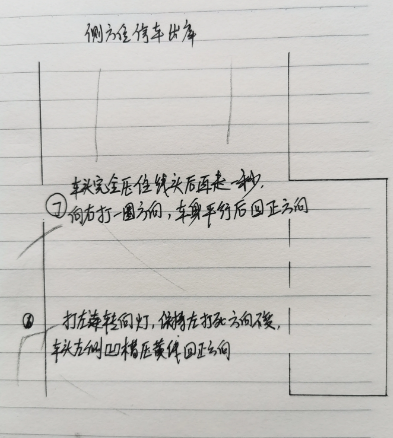 侧方位停车出库
车头完全压住线头后再走一秒,
⑦ 向右打一圈方向,车身平行后回正方向
⑥ 打左转向灯,保持左打死方向不变,
车头左侧凹槽压黄线回正方向